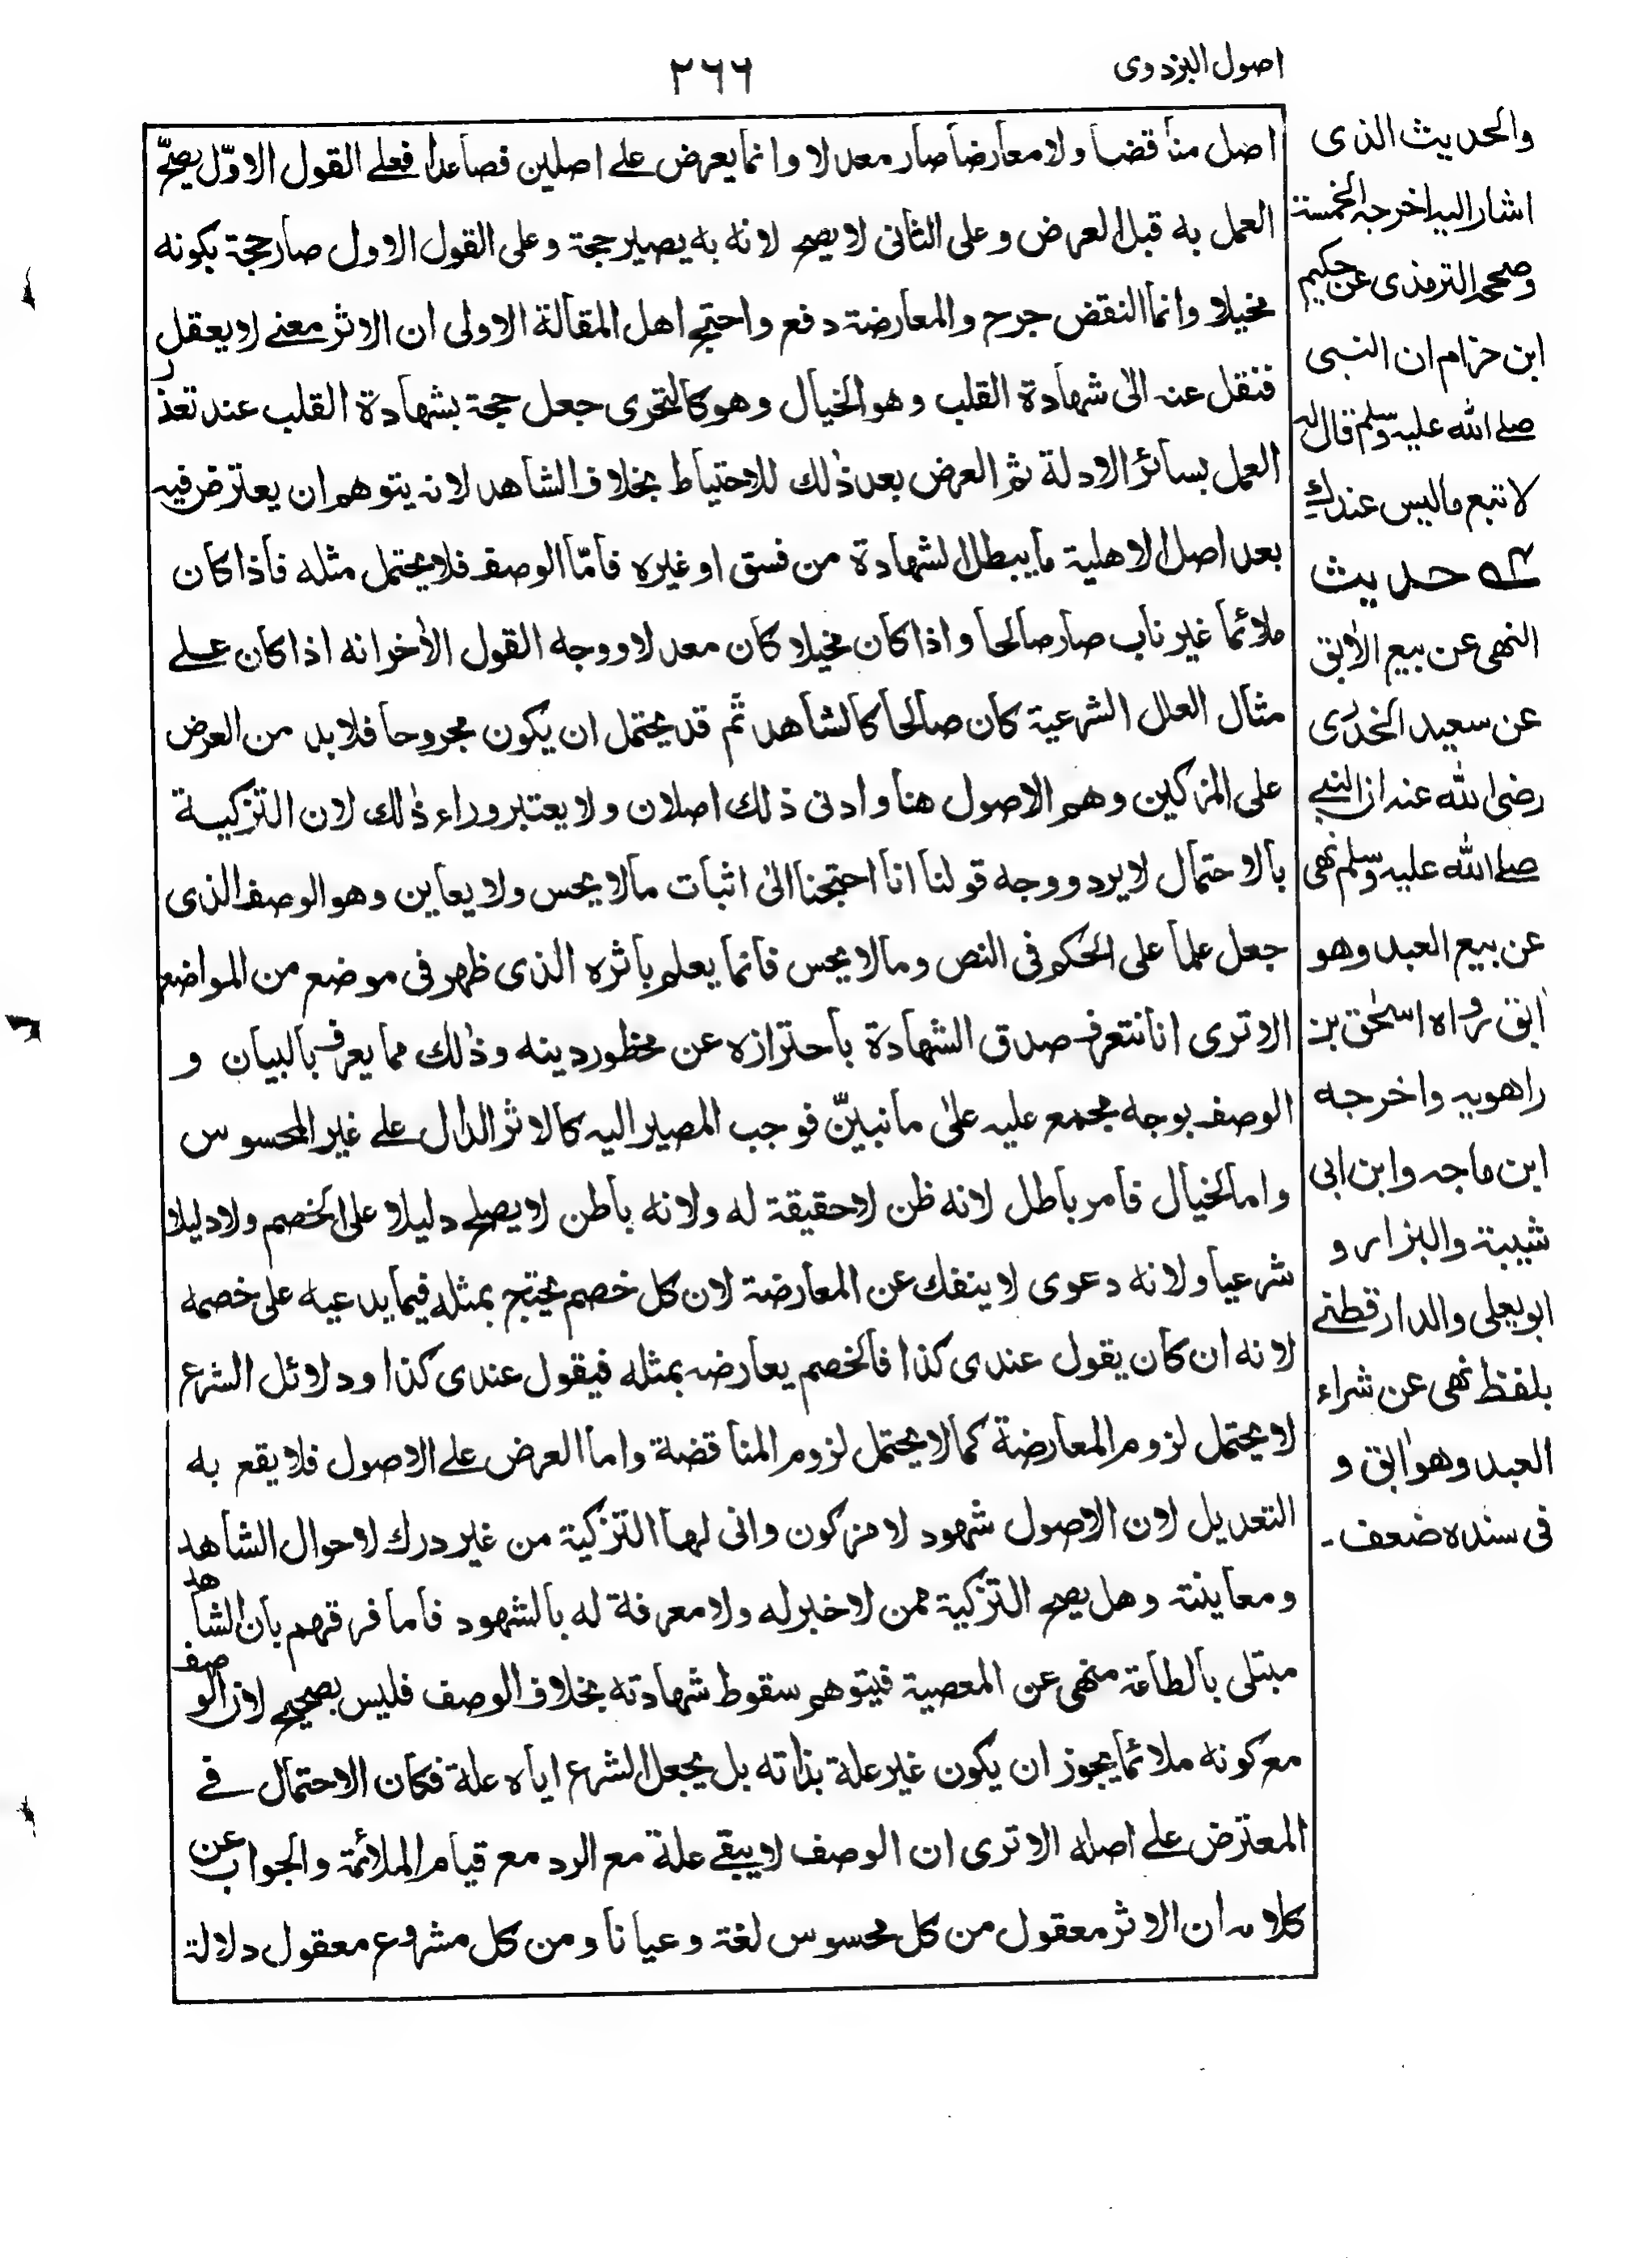 اصول البزدوى
٢٦٦
اصل مناقضا ولا معارضا صار معدلا وانما يعرض على اصلين فصاعدا فعلى القول الاوّل يصحّ
العمل به قبل العرض وعلى الثانى لا يصح لانه به يصير حجة وعلى القول الاول صار حجة بكونه
مخيلا وانما النقض جرح والمعارضة دفع واحتج اهل المقالة الاولى ان الاثر معنى لا يعقل
فنقل عنه الى شهادة القلب وهو الخيال وهو كالتحرى جعل حجة بشهادة القلب عند تعذر
العمل بسائر الادلة ثم العرض بعد ذلك للاحتياط بخلاف الشاهد لانه يتوهم ان يعترض فيه
بعد اصل الاهلية ما يبطل الشهادة من فسق او غيره فامّا الوصف فلا يحتمل مثله فاذا كان
ملائما غير ناب صار صالحا واذا كان مخيلا كان معدلا ووجه القول الأخر انه اذا كان على
مثال العلل الشرعية كان صالحا كالشاهد ثم قد يحتمل ان يكون مجروحا فلا بد من العرض
على المزكين وهم الاصول هنا وادنى ذلك اصلان ولا يعتبر وراء ذلك لان التزكية
بالاحتمال لا يرد ووجه قولنا انا احتجنا الى اثبات مالا يحس ولا يعاين وهو الوصف الذى
جعل علما على الحكم فى النص وما لا يحس فانما يعلم باثره الذى ظهر فى موضع من المواضع
الا ترى انا نتعرف صدق الشهادة باحترازه عن محظور دينه وذلك مما يعرف بالبيان و
الوصف بوجه مجمع عليه على ما نبيّن فوجب المصير اليه كالاثر الدال على غير المحسوس
واما الخيال فامر باطل لانه ظن لا حقيقة له ولانه باطن لا يصلح دليلا على الخصم ولا دليلا
شرعيا ولانه دعوى لا ينفك عن المعارضة لان كل خصم يحتج بمثله فيما يدعيه على خصمه
لانه ان كان يقول عندى كذا فالخصم يعارضه بمثله فيقول عندى كذا ودلائل الشرع
لا يحتمل لزوم المعارضة كما لا يحتمل لزوم المناقضة واما العرض على الاصول فلا يقع به
التعديل لان الاصول شهود لا مزكون وانى لها التزكية من غير درك لاحوال الشاهد
ومعاينته وهل يصح التزكية ممن لا خبر له ولا معرفة له بالشهود فاما فرقهم بان الشاهد
مبتلى بالطاعة منهى عن المعصية فيتوهم سقوط شهادته بخلاف الوصف فليس بصحيح لان الوصف
مع كونه ملائما يجوز ان يكون غير علة بذاته بل يجعل الشرع اياه علة فكان الاحتمال فى
المعترض على اصله الا ترى ان الوصف لا يبقى علة مع الرد مع قيام الملائمة والجواب عن
كلامه ان الاثر معقول من كل محسوس لغة وعيانا ومن كل مشروع معقول دلالة
والحديث الذى
اشار اليه اخرجه الخمسة
وصححه الترمذى عن حكيم
ابن حزام ان النبى
صلى الله عليه وسلم قال له
لا تبع ما ليس عندك
حديث
النهى عن بيع الأبق
عن سعيد الخدرى
رضى الله عنه ان النبى
صلى الله عليه وسلم نهى
عن بيع العبد وهو
ابق رواه اسحق بن
راهويه واخرجه
ابن ماجه وابن ابى
شيبة والبزار و
ابو يعلى والدارقطنى
بلفظ نهى عن شراء
العبد وهو أبق و
فى سنده ضعف ـ